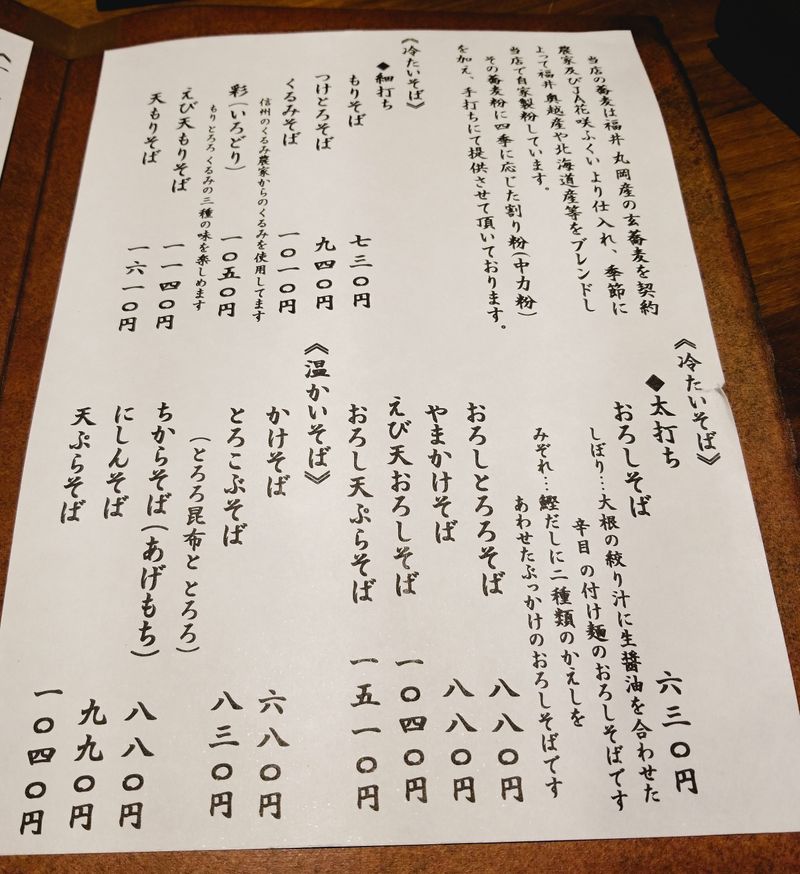 当店の蕎麦は福井 丸岡産の玄蕎麦を契約
農家及びJA花咲ふくいより仕入れ、季節に
よって福井奥越産や北海道産等をブレンドし
当店で自家製粉しています。
その蕎麦粉に四季に応じた割り粉(中力粉)
を加え、手打ちにて提供させて頂いております。
《冷たいそば》
◆細打ち
もりそば 七三〇円
つけとろそば 九四〇円
くるみそば 一〇一〇円
信州のくるみ農家からのくるみを使用してます
彩(いろどり) 一〇五〇円
もり とろろ くるみの三種の味を楽しめます
えび天もりそば 一一四〇円
天もりそば 一六一〇円
《冷たいそば》
◆太打ち
おろしそば 六三〇円
しぼり…大根の絞り汁に生醤油を合わせた
辛目の付け麺のおろしそばです
みぞれ…鰹だしに二種類のかえしを
あわせたぶっかけのおろしそばです
おろしとろろそば 八八〇円
やまかけそば 八八〇円
えび天おろしそば 一〇四〇円
おろし天ぷらそば 一五一〇円
《温かいそば》
かけそば 六八〇円
とろこぶそば 八三〇円
(とろろ昆布と とろろ)
ちからそば(あげもち) 八八〇円
にしんそば 九九〇円
天ぷらそば 一〇四〇円